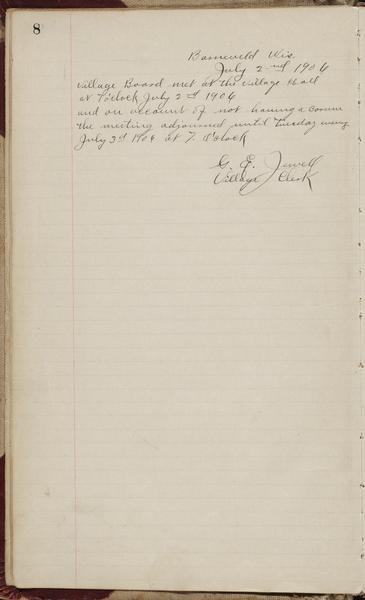 8
Barneveld Wis
July 2nd 1906
Village Board met at the Village Hall
at 7 o'clock July 2nd 1906
and on account of not having a
the meeting adjourned until Tuesday
July 3rd 1906 at 7. o'clock
G. E. Jewell
Village Clerk